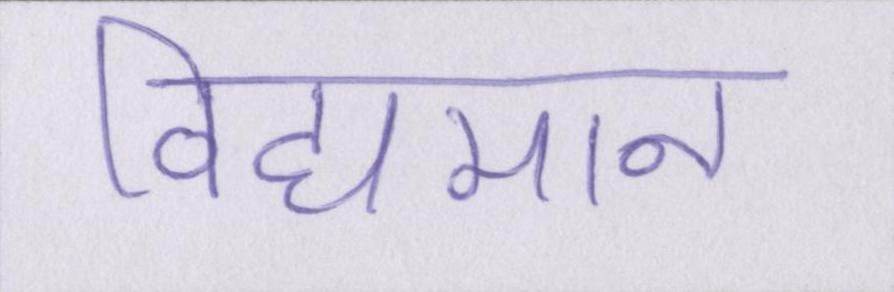 विद्यमान